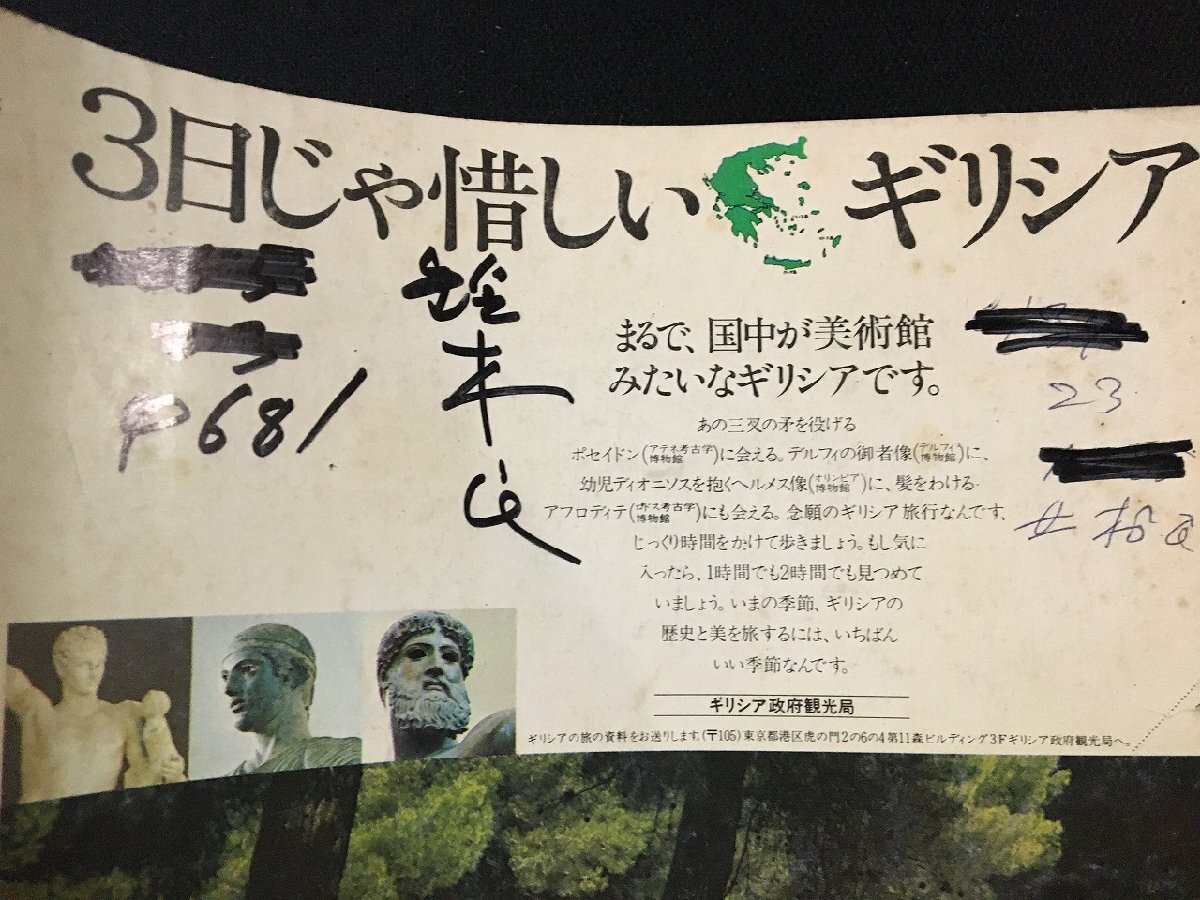 3日じゃ惜しい ギリシア
まるで、国中が美術館
みたいなギリシアです。
あの三叉の矛を役げる
ポセイドン(アテネ考古学博物館)に会える。デルフィの御者像(デルフィ博物館)に、
幼児ディオニソスを抱くヘルメス像(オリンピア博物館)に、髪をわける
アフロディテ(ロドス考古学博物館)にも会える。念願のギリシア旅行なんです、
じっくり時間をかけて歩きましょう。もし気に
入ったら、1時間でも2時間でも見つめて
いましょう。いまの季節、ギリシアの
歴史と美を旅するには、いちばん
いい季節なんです。
ギリシア政府観光局
ギリシアの旅の資料をお送りします。(〒105)東京都港区虎の門2の6の4第11森ビルディング3Fギリシア政府観光局へ。
P681
23